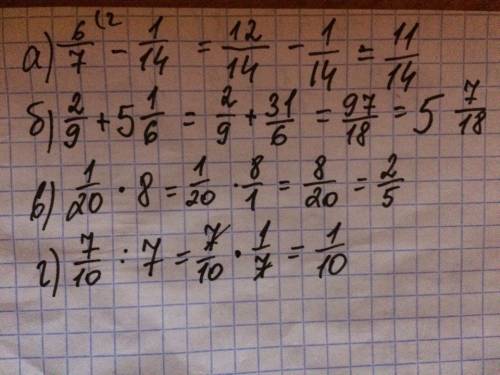 а) 6/7 (2 - 1/14 = 12/14 - 1/14 = 11/14
б) 2/9 + 5 1/6 = 2/9 + 31/6 = 97/18 = 5 7/18
в) 1/20 · 8 = 1/20 · 8/1 = 8/20 = 2/5
г) 7/10 : 7 = 7/10 · 1/7 = 1/10